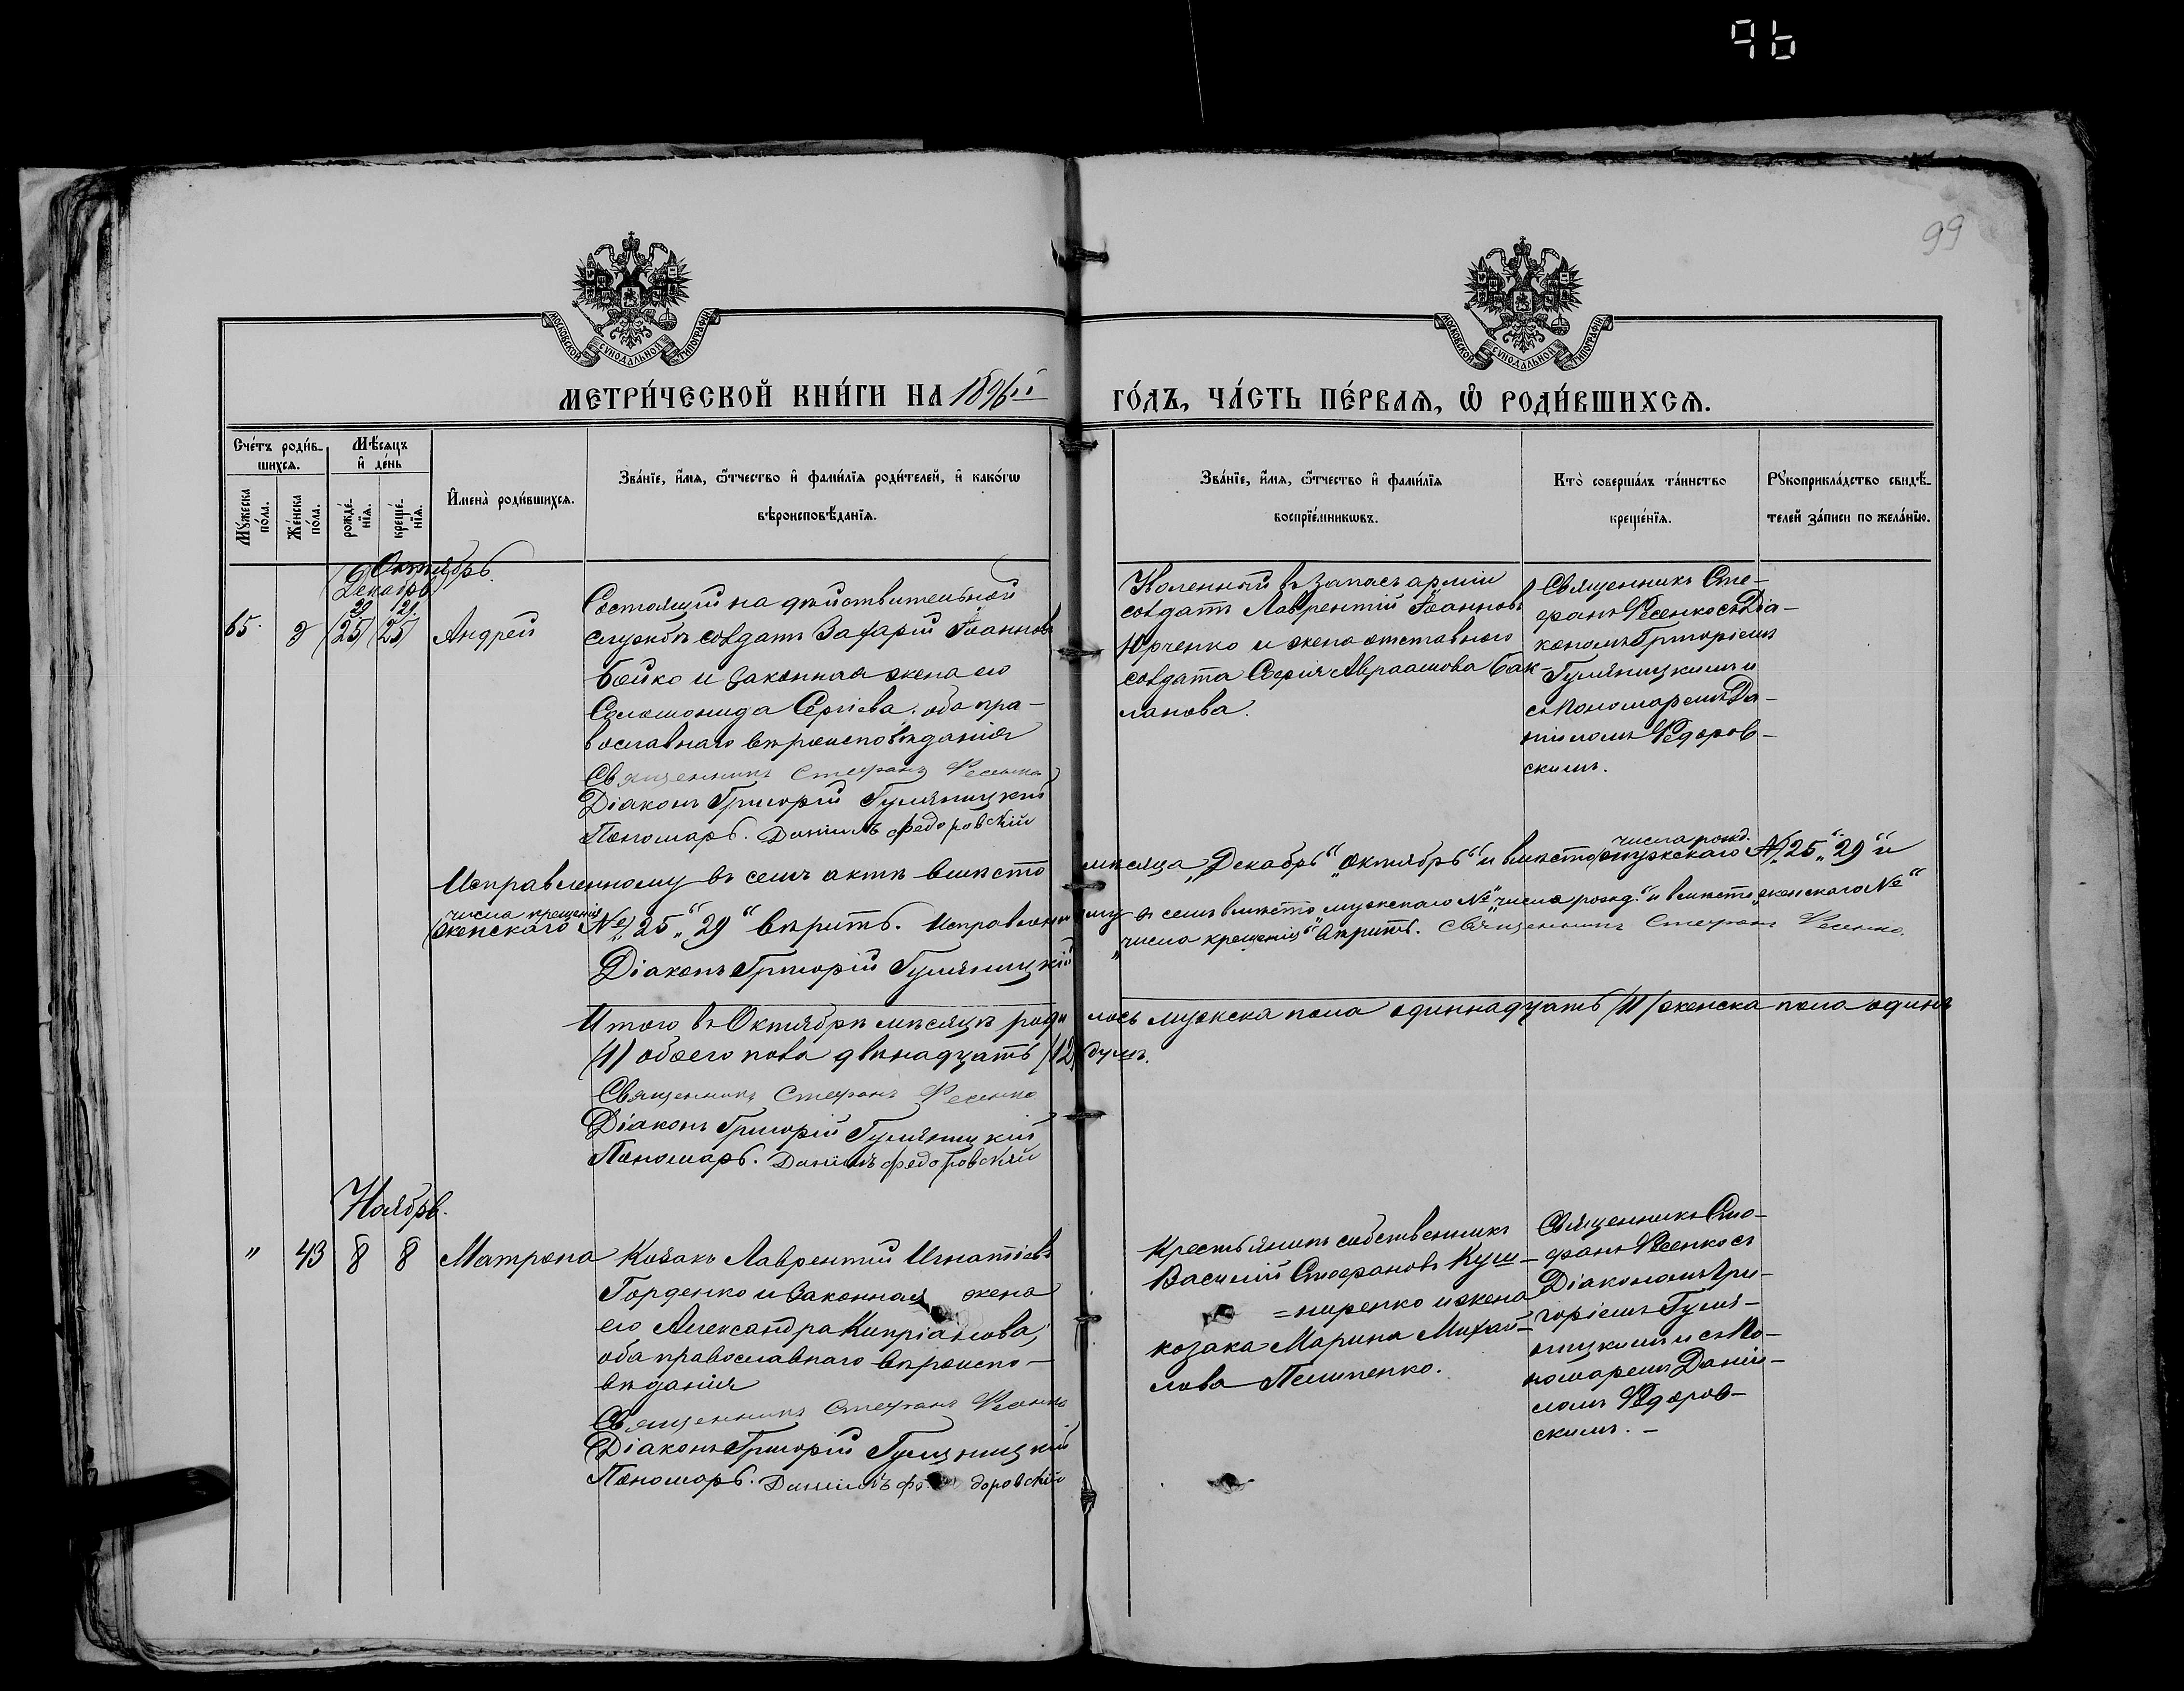 96
99
МОСКОВСКОЙ СѴНОДАЛЬНОЙ ТИПОГРАФІИ
МОСКОВСКОЙ СѴНОДАЛЬНОЙ ТИПОГРАФІИ
МЕТРИ́ЧЕСКОЙ КНИ́ГИ НА 1896й ГО́ДЪ, ЧА́СТЬ ПЕ́РВАѦ, Ѡ РОДИ́ВШИХСѦ.
Сче́тъ роди́в-
шихсѧ.
Мѣ́сѧцъ
и҆ де́нь
Мꙋ́жеска по́ла.
Же́нска по́ла.
рожде́-нїѧ.
креще́-нїѧ.
И҆мена̀ роди́вшихсѧ.
Зва́нїе, и҆́мѧ, ѻ҆́тчество и҆ фами́лїѧ роди́телей, и҆ како́гѡ
вѣроисповѣ́данїѧ.
Зва́нїе, и҆́мѧ, ѻ҆́тчество и҆ фами́лїѧ
воспрїе́мникѡвъ.
Кто̀ соверша́лъ та́инство
креще́нїѧ.
Рꙋкоприкла́дство свидѣ́-
телей за́писи по жела́нїю.
Октябрь.
(Декабрь)
29 29.
65. (25) (25) Андрей
Состоящій на дѣйствительной
службѣ солдатъ Захарій Іоанновъ
Бойко и законная жена его
Соломонида Сергіева, оба пра-
вославнаго вѣроисповѣданія
Священникъ Стефанъ Фесенко
Діаконъ Григорій Гуляницкій
Пономарь. Даніилъ Федоровскій
въ запасъ арміи
солдатъ Лаврентій Іоанновъ
Юрченко и жена отставного
солдата Авраамова Бак-
ланова.
Священникъ Сте-
фанъ Фесенко съ Діа-
кономъ Григоріемъ
Гуляницкимъ и
съ Пономаремъ Да-
ніиломъ Федоров-
скимъ.
Исправленному въ семъ актѣ вмѣсто мѣсяца „Декабрь“ „Октябрь“ и вмѣсто (мужскаго №) числа рожд. „25“ „29“ и
(женскаго №) числа крещенія „25“ „29“ вѣрить. Исправленному въ семъ вмѣсто „мужскаго №“ „числа рожд.“ и вмѣсто „женскаго №“
„числа крещенія“ вѣрить. Священникъ Стефанъ Фесенко.
Діаконъ Григорій Гуляницкій
Итого въ Октябрѣ мѣсяцѣ родилось мужска пола одиннадцать (11) женска пола одинъ
(1) обоего пола двѣнадцать (12) душъ.
Священникъ Стефанъ Фесенко
Діаконъ Григорій Гуляницкій
Пономарь. Даніилъ Федоровскій
Ноябрь.
" 43 8 8 Матрона
Козакъ Лаврентій Игнатіевъ
Горденко и законная жена
его Александра Кипріанова,
оба православнаго вѣроиспо-
вѣданія
Священникъ Стефанъ Фесенко
Діаконъ Григорій Гуляницкій
Пономарь. Даніилъ Федоровскій
Крестьянинъ собственникъ
Василій Стефановъ Куш-
=ниренко и жена
козака Марина Михай-
лова
Священникъ Сте-
фанъ Фесенко съ
Діакономъ Гри-
горіемъ Гуля-
ницкимъ и съ По-
номаремъ Даніи-
ломъ Федоров-
скимъ. -